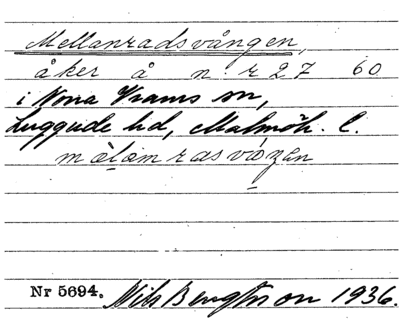 Mellanradsvången,
åker å n:r 27 60
i Norra Vrams sn,
Luggude hd, Malmöh. l.
Nr 5694. Nils Bengtsson 1936.